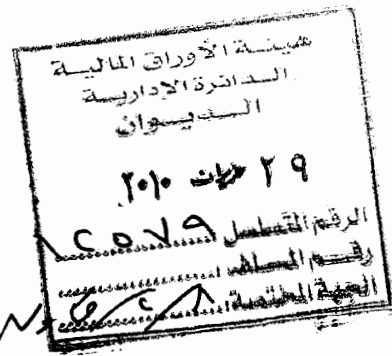 هيئة الأوراق المالية
الدائرة الإدارية
الديوان
٢٩ حزيران ٢٠١٠
الرقم المتسلسل ٢٥٧٩
رقم الملف
الجهة المختصة